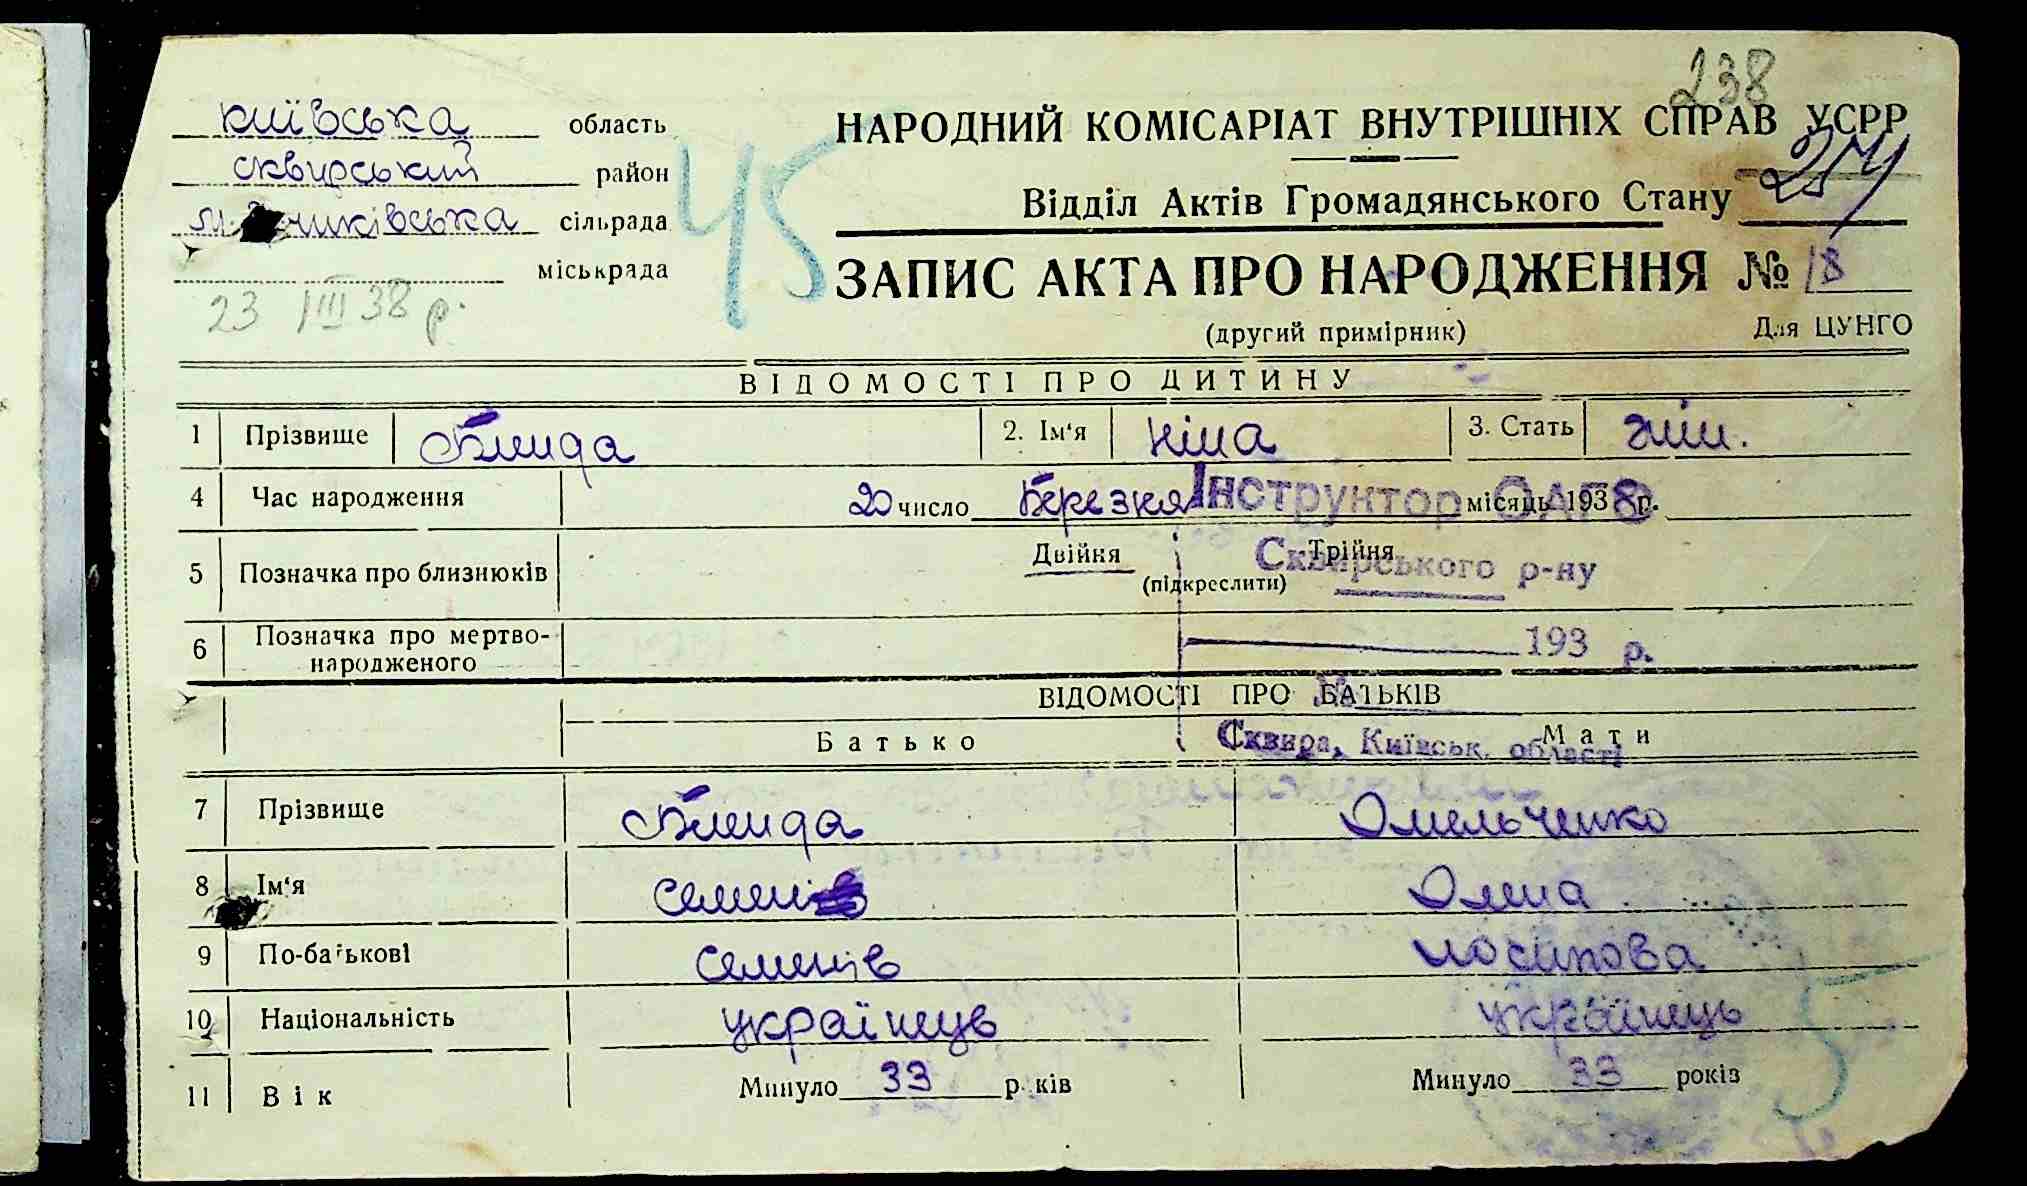 238
київська область
НАРОДНИЙ КОМІСАРІАТ ВНУТРІШНІХ СПРАВ УСРР
сквирський район
45
Відділ Актів Громадянського Стану
сільрада
міськрада
ЗАПИС АКТА ПРО НАРОДЖЕННЯ № 18
23 III 38 р.
(другий примірник) Для ЦУНГО
ВІДОМОСТІ ПРО ДИТИНУ
1 Прізвище Блида 2. Ім'я ніна 3. Стать жін.
4 Час народження 20 число березня місяць 1938 р.
Інструктор ОАГС
5 Позначка про близнюків Двійня Трійня
(підкреслити)
Сквирського р-ну
6 Позначка про мертво-
народженого
193 р.
ВІДОМОСТІ ПРО БАТЬКІВ
Батько Мати
м. Сквира, Київськ. області
7 Прізвище Блида Омельченко
8 Ім'я семен Олена
9 По-батькові семенів иосипова
10 Національність українець українець
11 Вік Минуло 33 років Минуло 33 років
5